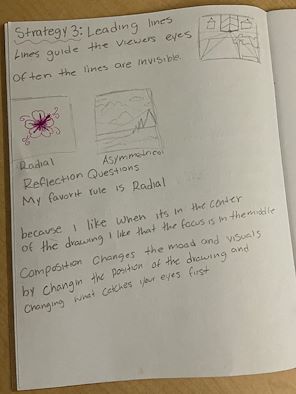 Strategy 3: Leading lines
Lines guide the viewers eyes
Often the lines are invisible.
Radial
Asymmetrical
Reflection Questions
My favorite rule is Radial
because I like when its in the center
of the drawing I like that the focus is in the middle
Composition Changes the mood and visuals
by changin the position of the drawing and
Changing what catches your eyes first